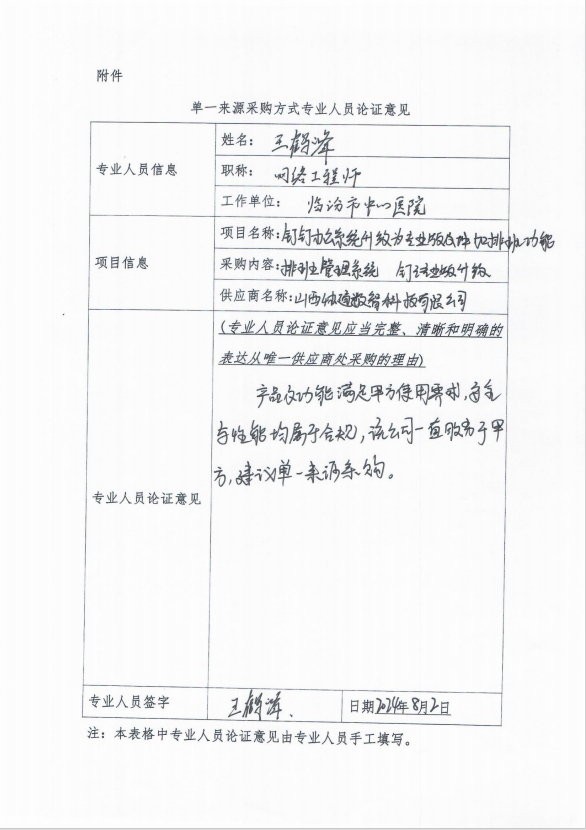 附件
单一来源采购方式专业人员论证意见
专业人员信息
姓名：王鹤峰
职称：网络工程师
工作单位：临汾市中心医院
项目信息
项目名称：钉钉办公系统升级为专业版及增加排班功能
采购内容：排班管理系统 钉钉专业版升级
供应商名称：山西纵通数智科技有限公司
专业人员论证意见
(专业人员论证意见应当完整、清晰和明确的
表达从唯一供应商处采购的理由)
产品及功能满足甲方使用需求，安全
与性能均属于合规，该公司一直服务于甲
方，建议单一来源采购。
专业人员签字
王鹤峰、
日期2024年8月2日
注：本表格中专业人员论证意见由专业人员手工填写。